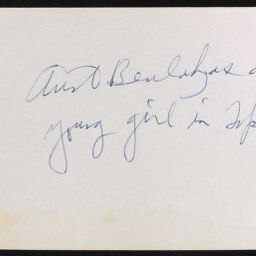 Aunt Beulah as a
young girl in